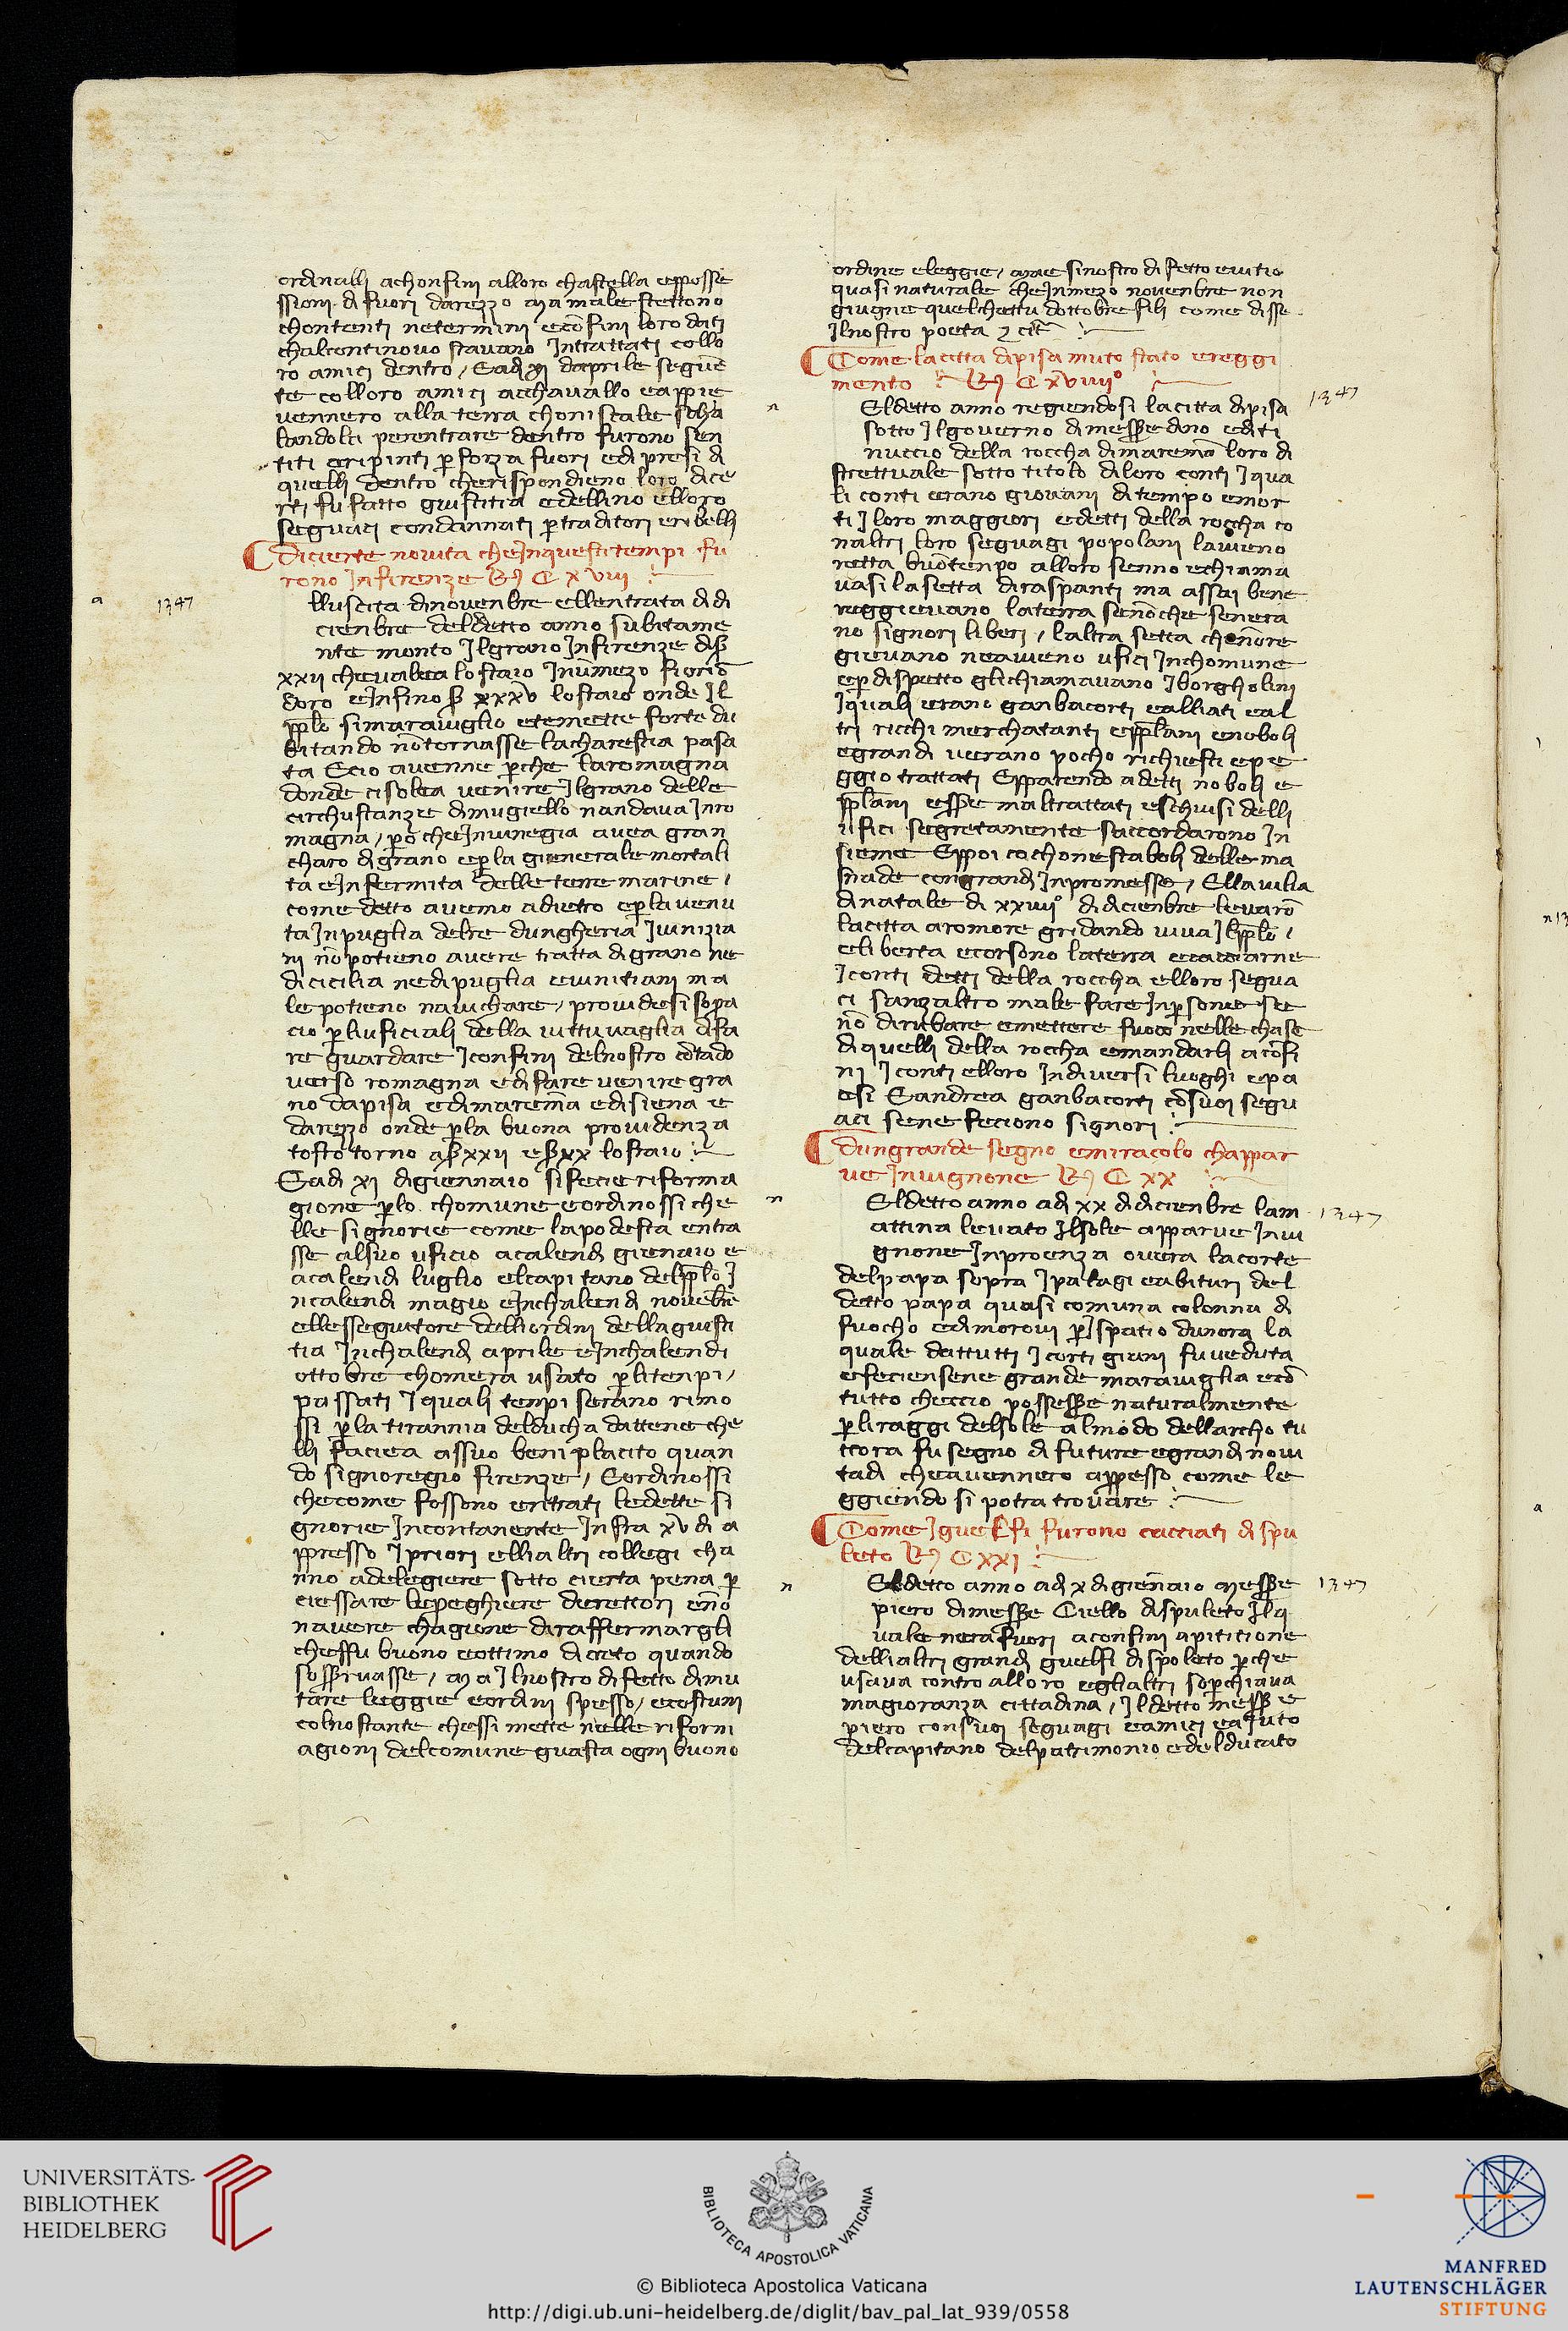 ordinalli achonfini alloro chastella eposse
ssioni di fuori darezzo Ma male stettono
chontenti netermini econfini loro dati
chalcontinovo stavano Intrattati collo
ro amici dentro / Eadi xi daprile seguē
te colloro amici acchavallo eappie
vennero alla terra choniscale scha
landola perentrare dentro furono sen
titi eripinti ꝑ forza fuori edi presi di
quelli dentro cherispondieno loro dice
rti fu fatto giustitia edellino elloro
seguaci condannati ꝑ traditori erubelli
dicierte novita cheInquestitempi fu
rono Infirenze R C xviii
a 1347
lluscita dinovenbre ellentrata didi
cienbre deldetto anno subitame
nte monto Ilgrano Infirenze di ß
xxii chevalea lo staio Inumezo fiorīo
doro eInfino ß xxxv lo staio onde Il
ppło simaraviglio etemette forte du
bitando nōtornasse lacharestia pasa
ta Ecio avenne ꝑche laromagna
donde cisolea venire Ilgrano delle
circhustanze dimugiello nandava Inro
magna / ꝑo cheInvinegia avea gran
charo di grano eꝑla gienerale mortali
ta eInfermita delle terre marine /
come detto avemo adietro eꝑlavenu
ta Inpuglia delre dungheria Ivinizia
ni nōpotieno avere tratta digrano ne
dicicilia nedipuglia eviniziani ma
le potieno navichare / providesi sopa
cio ꝑliuficiali della vittuvaglia difa
re guardare Iconfini delnostro cōtado
verso romagna edifare venire gra
no dapisa edimarēma edisiena e
darezzo onde ꝑla buona providenza
tosto torno aß xxii eß xx lo staio
Eadi xi digiennaio sifecie riforma
gione ꝑlo chomune eordinossi che
lle signorie come lapodesta entra
sse alsuo uficio acalendi giennaio e
acalendi luglio elcapitano delppło I
ncalendi magio eInchalendi novēbre
ellessegutore delliordini dellagiusti
tia Inchalendi aprile eInchalendi
ottobre chomera usato ꝑlitenpi /
passati Iquali tenpi serano rimo
ssi ꝑla tirannia delducha dattene che
lli faciea assuo beniplacito quan
do signoregio firenze / Eordinossi
checome fossono entrati ledette si
gnorie Incontanente Infra xv di a
ppresso Ipriori elli altri collegi cha
nno adelegiere sotto cierta pena ꝑ
ciessare lepreghiere derettori enō
navere chagione diraffermargli
cheffu buono eottimo dicreto quando
soßrvasse / Ma Ilnostro difetto dimu
tare leggie eordini spesso / ecostum
colnostante chessi mette nelle riform
agioni delcomune guasta ogni buono
ordine eleggie / Mae sinostro difetto evitio
quasi naturale cheInmezo novenbre non
giugne quelchettu dottobre fili come disse
Ilnostro poeta
Come lacitta dipisa muto stato ereggi
mento R C xviiii°
n 1347
Eldetto anno regiendosi lacitta dipisa
sotto Ilgoverno dimesseredino editi
nuccio della roccha dimaremā loro di
strettuale sotto titolo diloro conti Iqua
li conti erano giovani di tempo emor
ti Iloro maggiori edetti della roccha co
naltri loro seguagi popolani lavieno
retta buōtenpo alloro senno echiama
vasi lasetta diraspanti ma assai bene
reggievano laterra senōche senera
no signori liberi / laltra setta chenōre
gievano neavieno ufici Inchomune
eꝑ dispetto glichiamavano Iborgholini
Iquali erano ganbacorti ealliati eal
tri ricchi merchatanti eppłani enoboli
egrandi verano pocho richiesti epe
ggio trattati Epparendo adetti noboli e
ppłani essere maltrattati eschiusi delli
ufici segretamente saccordarono In
sieme Eppoi cochonestaboli delle ma
snade congrandi Inpromesse / Ellavilia
dinatale di xxiiii° didicienbre levarō
lacitta aromore gridando viva Ilppło /
eliberta ecorsono laterra ecacciarne
Iconti detti della roccha elloro segua
ci sanzaltro male fare Inpersone se
nō dirubare emettere fuoco nelle chase
diquelli della roccha emandarli acōfi
ni Iconti elloro Indiversi luoghi epa
esi Eandrea ganbacorti cōsuoi segu
aci sene feciono signori
dungrande segno emiracolo chappar
ve Invignone R C xx
n 1347
Eldetto anno adi xx didicienbre lam
attina levato Ilsole apparve Invi
gnone Inproenza overa lacorte
delpapa sopra Ipalagi eabituri del
detto papa quasi comuna colonna di
fuocho edimorovi ꝑ Ispatio dunora la
quale dattutti Icortigiani fu veduta
efeciensene grande maraviglia ecō
tutto checcio possessere naturalmente
ꝑliraggi delsole almodo dellarcho tu
ttora fu segno di future egrandi novi
tadi cheavennero appesso come le
ggiendo si potra trovare
Come Iguelfi furono cacciati dispu
leto R C xxi
n 1347
Eldetto anno adi x digiennaio messere
piero dimessere Ciello dispuleto Ilq
uale nera fuori aconfini apititione
delli altri grandi guelfi dispoleto ꝑche
usava contro alloro eglialtri soꝑchiava
magioranza cittadina / Ildetto messere
piero consuoi seguagi eamici eaiuto
delcapitano delpatrimonio edelducato
UNIVERSITÄTS-
BIBLIOTHEK
HEIDELBERG
BIBLIOTECA APOSTOLICA VATICANA
© Biblioteca Apostolica Vaticana
http://digi.ub.uni-heidelberg.de/diglit/bav_pal_lat_939/0558
MANFRED
LAUTENSCHLÄGER
STIFTUNG